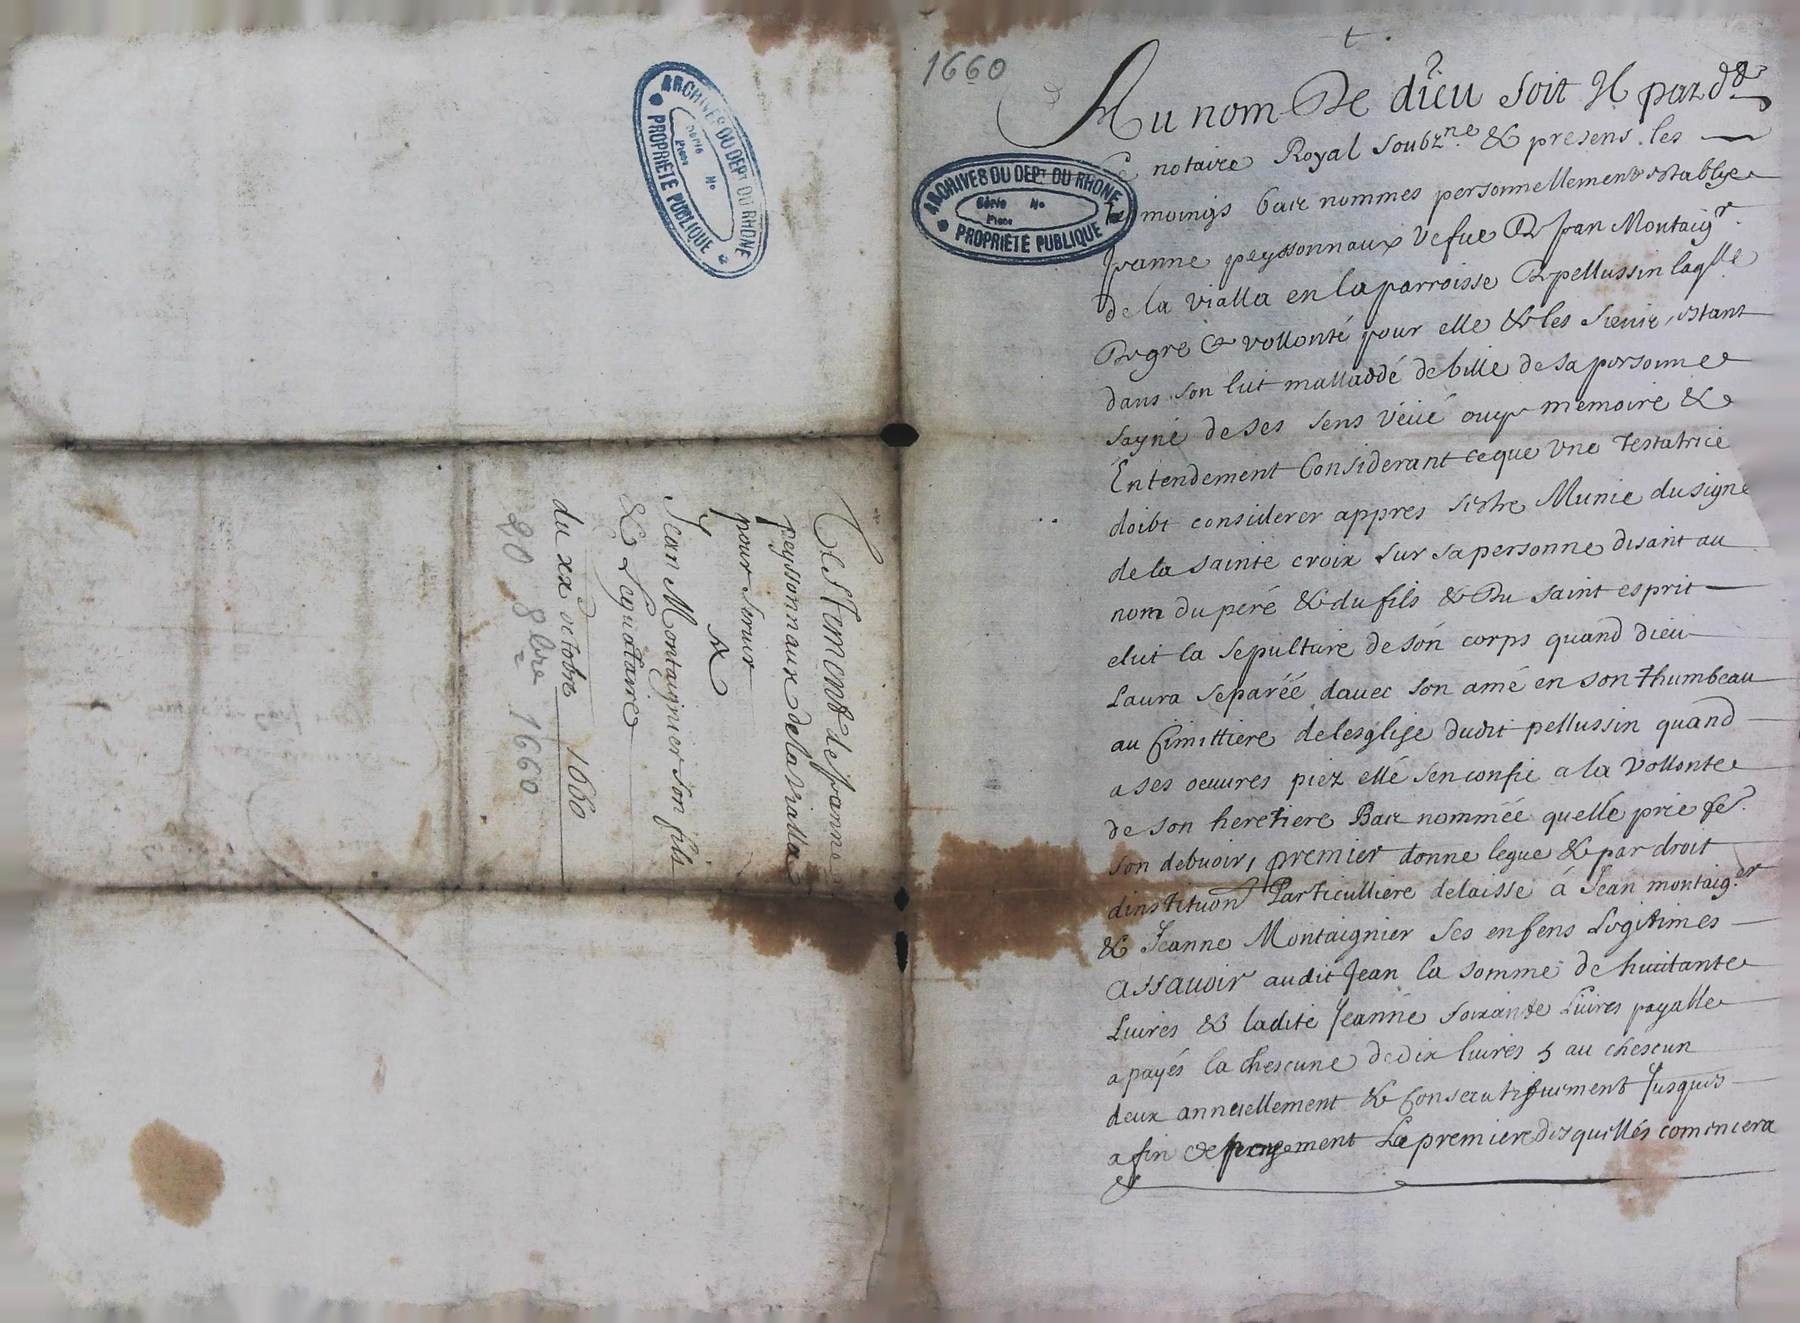 ARCHIVES DU DEPT DU RHONE
Série No
Pièce
PROPRIÉTÉ PUBLIQUE
Testament de Jeanne
peyssonnaux de la vialla
pour servir
A
Jean Montaignier son fils
& Legatairre
du xx octobre 1660
20 8bre 1660
1660
ARCHIVES DU DEPT DU RHONE
Série No
Pièce
PROPRIÉTÉ PUBLIQUE
Au nom De dieu soit Il par dt
notaire Royal soubzne & presens les
moings bas nommes personnellement establye
Jeanne peyssonnaux vefue De Jean Montaigr
de la vialla en la parroisse De pellussin laqlle
De gre & vollonté pour elle & les siens, estant
dans son lict malladde debille de sa personne
sayne de ses sens veüe ouye memoire &
Entendement Considerant ce que une Testatrice
doibt considerer appres sestre Munie du signe
de la sainte croix sur sa personne disant au
nom du peré & du fils & Du saint esprit
elut la sepulture de són corps quand dieu
Laura separéé dauec son amé en son thumbeau
au Cimittiere de lesglise dudit pellussin quand
a ses oeuures piez ellé sen confie a la vollonte
de son heretiere Bas nomméé quelle prie fe
son debuoir, premier donne legue & par droit
dinstituon Particulliere delaisse á Jean montaiger
& Jeanne Montaignier ses enfens Legitimes
assauoir audit Jean la sommé de huitante
Liures & ladite Jeanné soixante Liures payable
a payés la chescune de dix liures 5 au chescun
deux annuellement & Consecutifuement Jusques
a fin de payement La premiere desquelles comencera